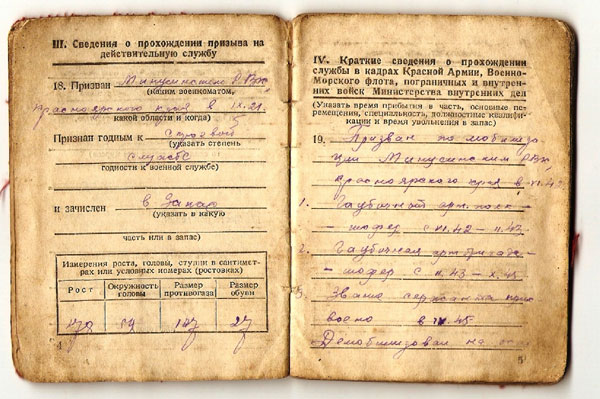 III. Сведения о прохождении призыва на
действительную службу
18. Призван Минусинским РВК
(каким военкоматом,
Красноярского края в IX.21.
какой области и когда)
Признан годным к строевой
(указать степень
службе
годности к военной службе)
и зачислен в запас
(указать в какую
часть или в запас)
Измерения роста, головы, ступни в сантимет-
рах или условных номерах (ростовках)
Рост
Окружность
головы
Размер
противогаза
Размер
обуви
59 27
4
IV. Краткие сведения о прохождении
службы в кадрах Красной Армии, Военно-
Морского флота, пограничных и внутрен-
них войск Министерства внутренних дел
(Указать время прибытия в часть, основные пе-
ремещения, специальность, должностные квалифи-
кации и время увольнения в запас)
19. Призван по мобилиза-
ции Минусинским РВК
Красноярского края в
1. Гаубочный арт. полк –
– шофер с XI.42 – II.43
2. Гаубочная арт бригада
– шофер с II.43 – X.45
3. Звание сержанта
в 45
Демобилизован на
5